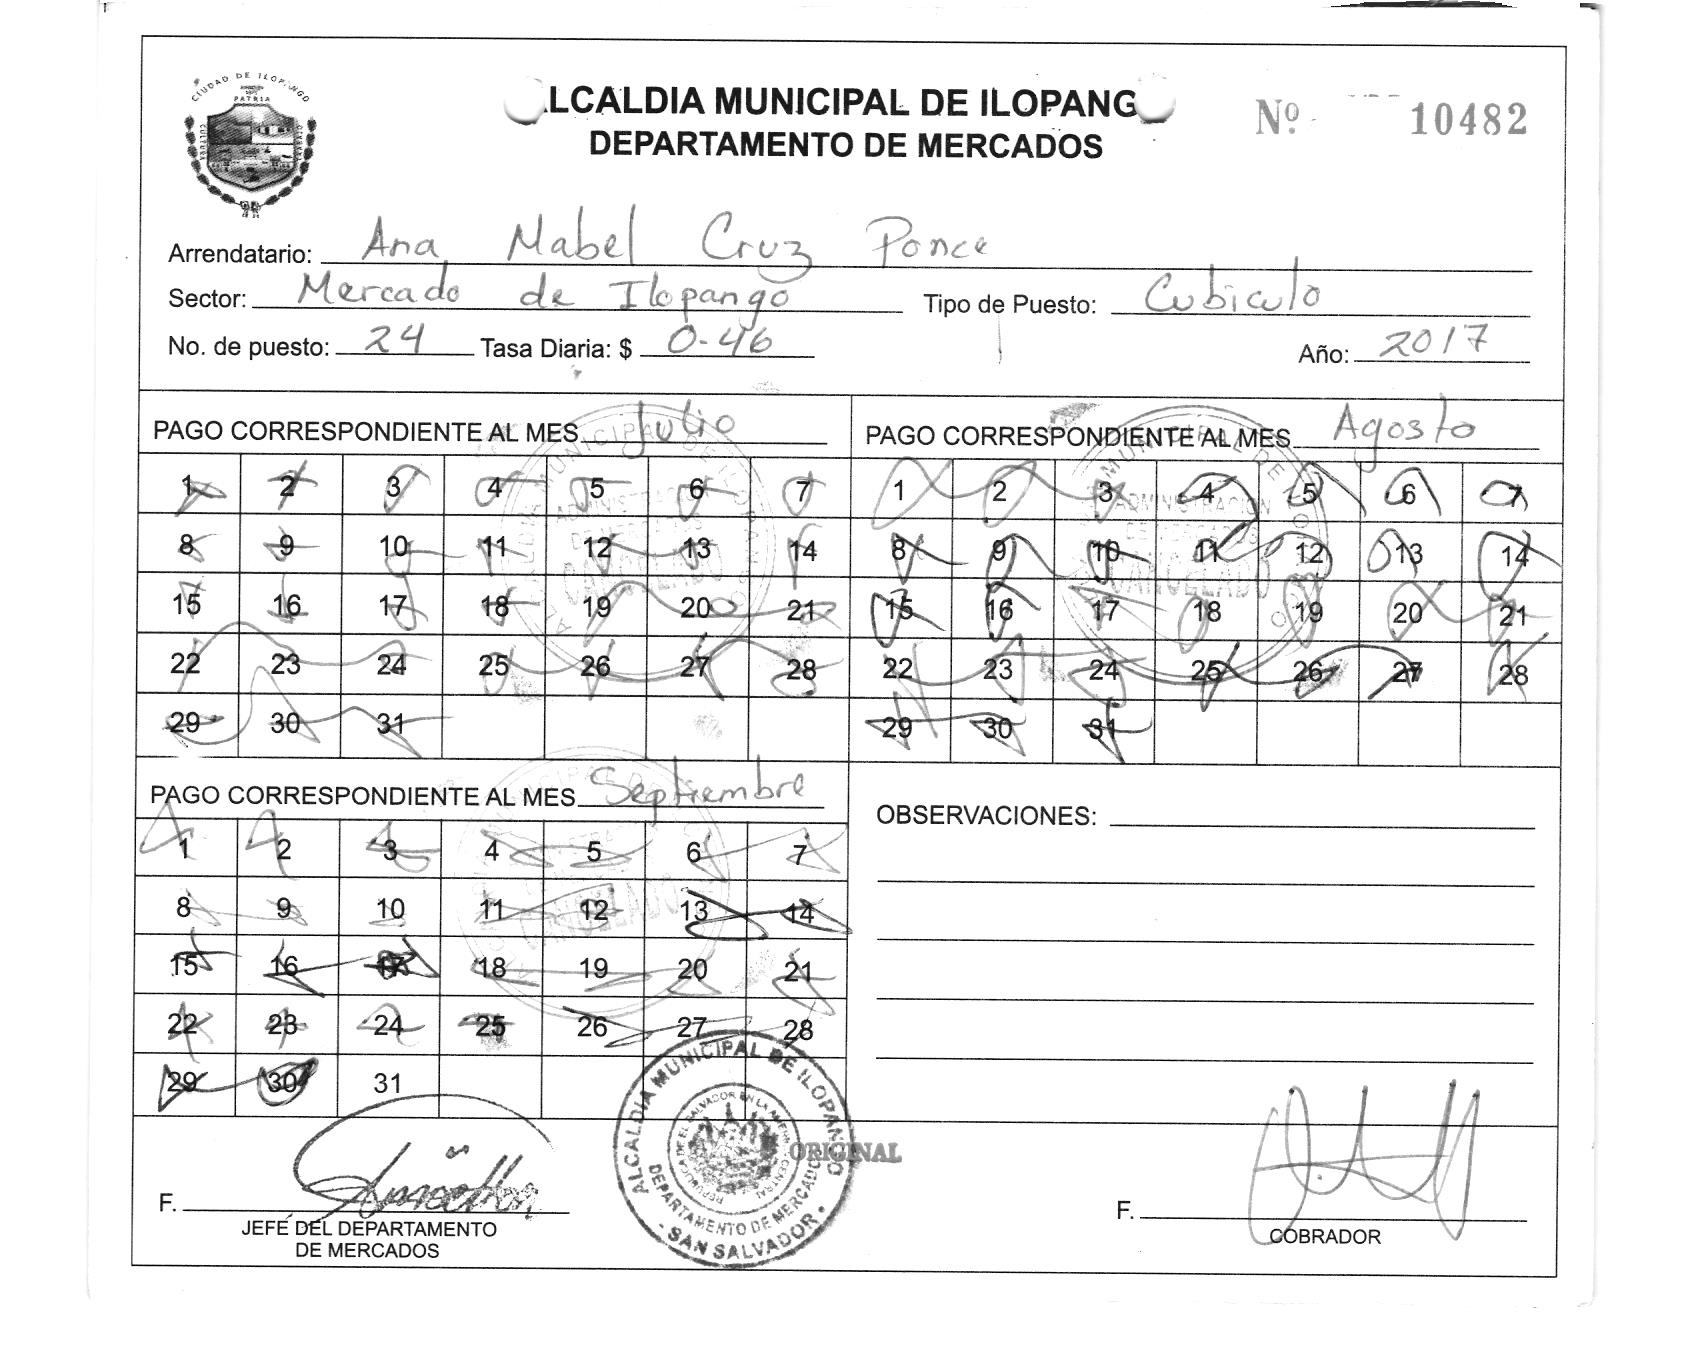 CIUDAD DE ILOPANGO
PATRIA
CULTURA
LCALDIA MUNICIPAL DE ILOPANG
DEPARTAMENTO DE MERCADOS
Nº 10482
Arrendatario: Ana Mabel Cruz Ponce
Sector: Mercado de Ilopango Tipo de Puesto: Cubiculo
No. de puesto: 24 Tasa Diaria: $ 0-46 Año: 2017
PAGO CORRESPONDIENTE AL MES Julio
1 2 3 4 5 6 7
8 9 10 11 12 13 14
15 16 17 18 19 20 21
22 23 24 25 26 27 28
29 30 31
ADMINISTRACION
CANCELADO
PAGO CORRESPONDIENTE AL MES Agosto
1 2 3 4 5 6 7
8 9 10 11 12 13 14
15 16 17 18 19 20 21
22 23 24 25 26 27 28
29 30 31
ADMINISTRACION
CANCELADO
PAGO CORRESPONDIENTE AL MES Septiembre
1 2 3 4 5 6 7
8 9 10 11 12 13 14
15 16 17 18 19 20 21
22 23 24 25 26 27 28
29 30 31
CANCELADO
OBSERVACIONES:
F.
JEFE DEL DEPARTAMENTO
DE MERCADOS
ALCALDIA MUNICIPAL DE ILOPANGO
DEPARTAMENTO DE MERCADOS
SAN SALVADOR
ORIGINAL
F.
COBRADOR